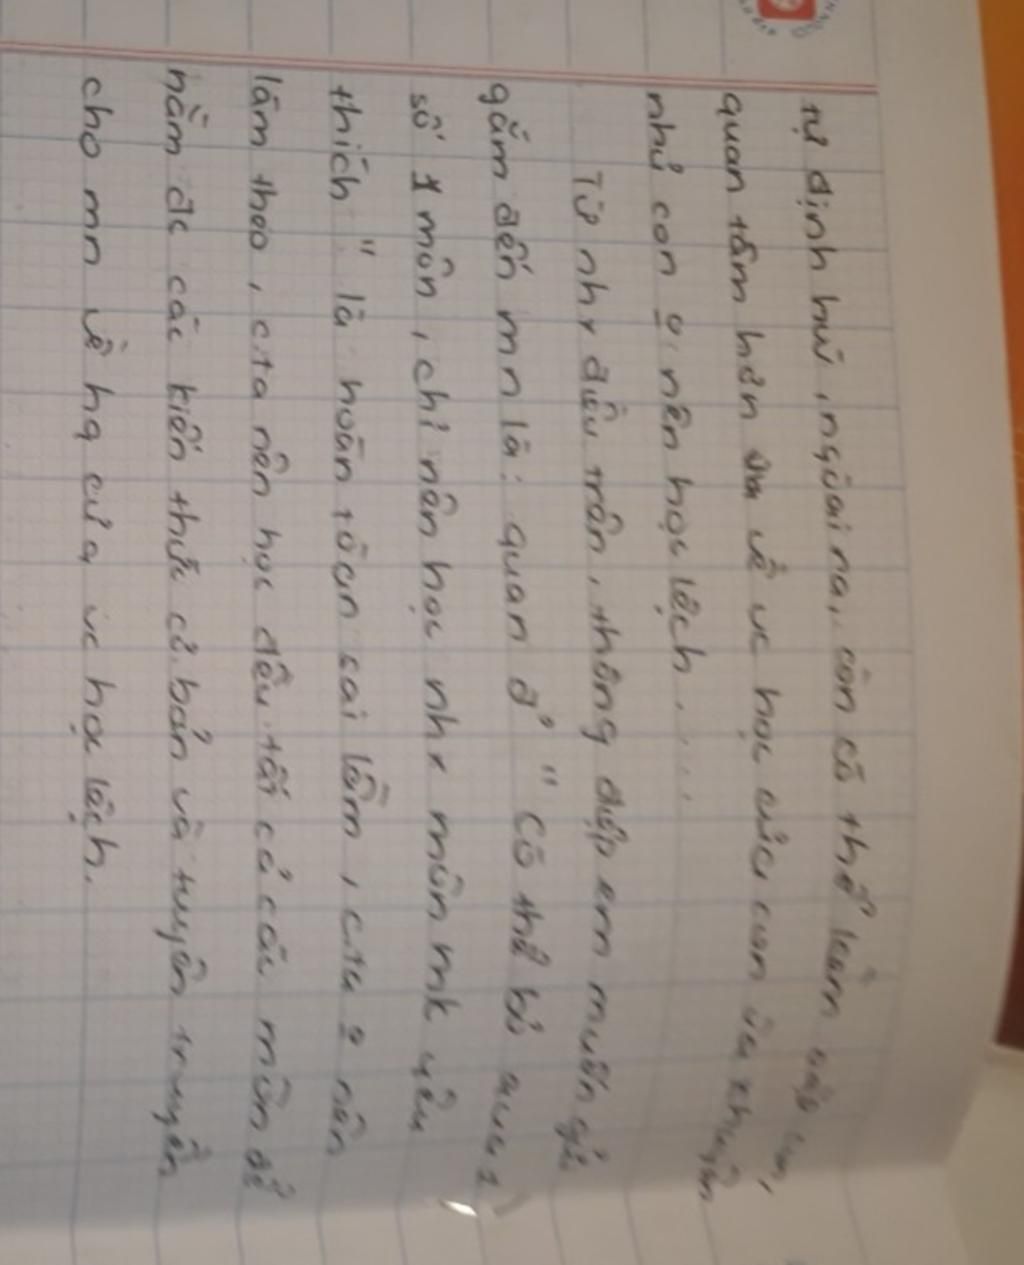 tự định hưi, ngòai ra, còn có thể làm
quan tâm hơn về vc học của con và khuyên
nhủ con o nên học lệch. . . .
Từ nhx điều trên, thông điệp em muốn gửi
gắm đến mn là: quan đ' " có thể bỏ qua 1
số 1 môn, chỉ nên học nhx môn mk yêu
thích " là hoàn tòan sai lầm, cta o nên
làm theo, cta nên học đều tất cả các môn để
nắm đc các kiến thức cơ bản và tuyên truyền
cho mn về hq của vc học lệch.